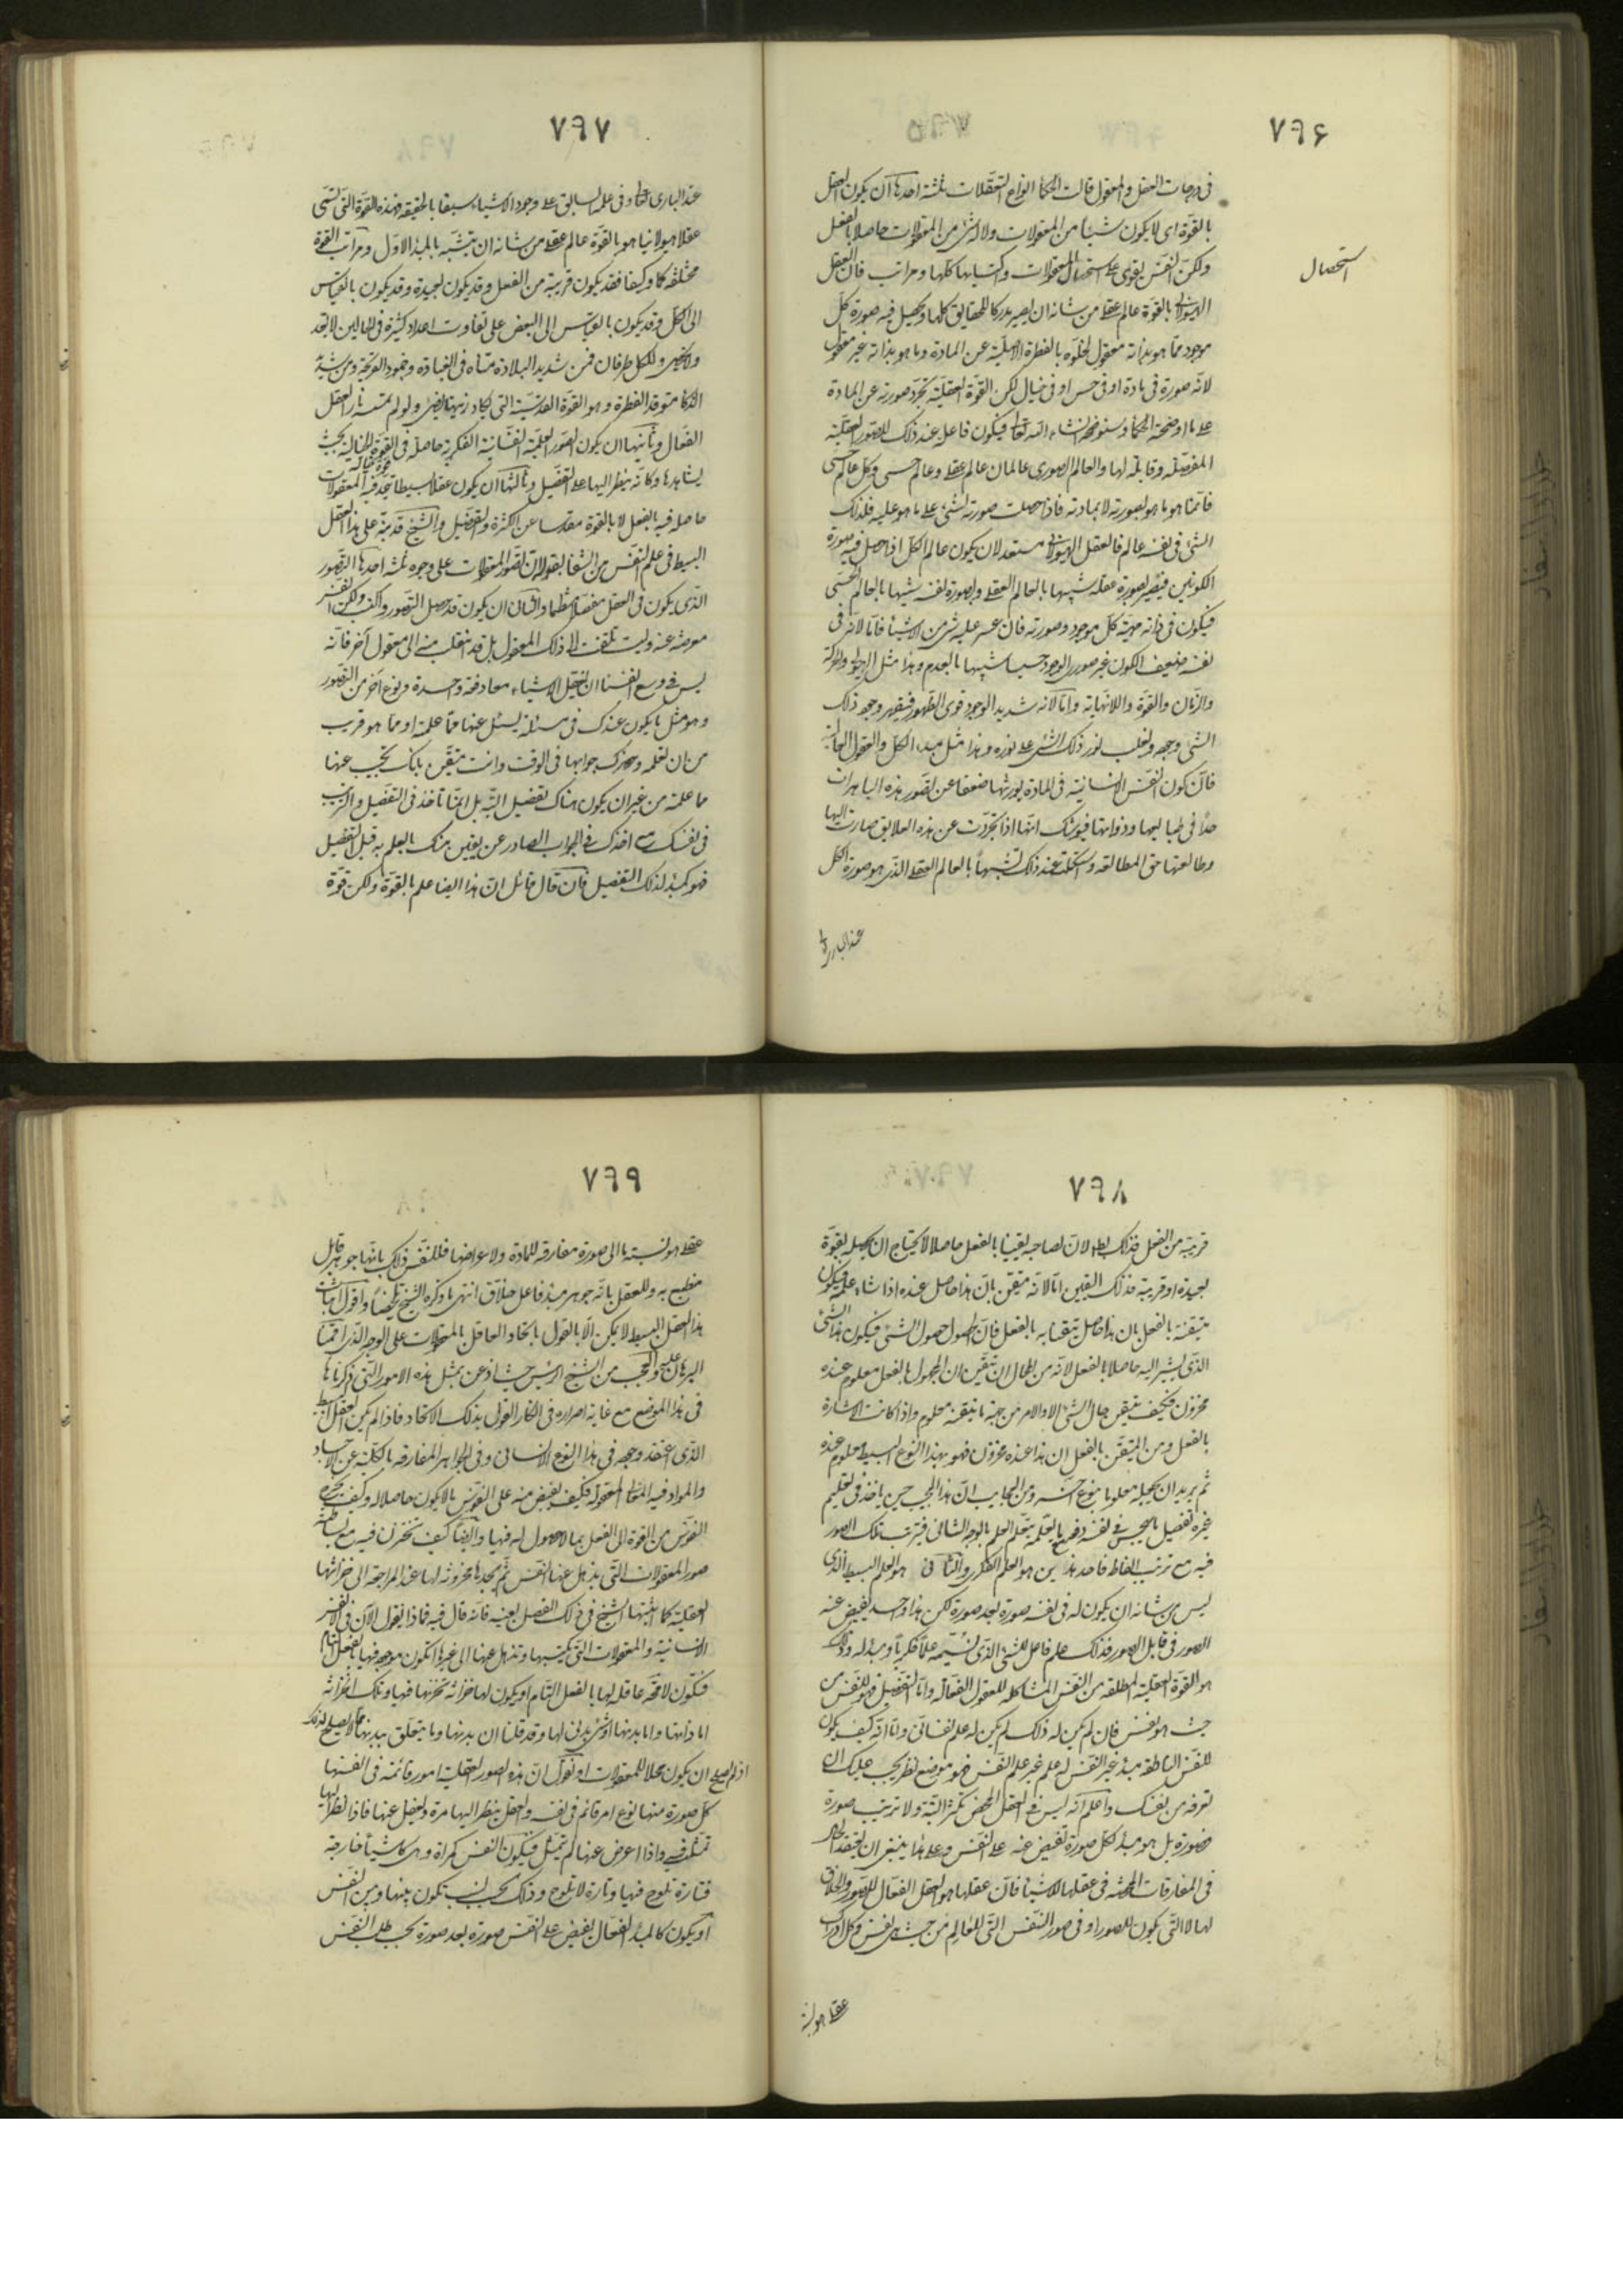 ٧٩۶
فى درجات العقل والمعقول قالت الحكما انواع التعقلات ثلثة احدها ان يكون العقل
بالقوة اى لا يكون شيئا من المعقولات ولا له شئ من المعقولات حاصلا بالفعل
ولكن النفس يقوى على استحصال المعقولات واكتسابها كلها ومراتب فان العقل
استحصال
الهيولانى بالقوة عالم عقلى من شانه ان يصير مدركا للحقايق كلها ويحصل فيه صورة كل
موجود مما هو بذاته معقول لخلوه بالفطرة الاصلية عن المادة وما هو بذاته غير معقول
لانه صورة فى مادة او فى حس او فى خيال لكن القوة العقلية تجرد صورته عن المادة
على ما اوضحته الحكما وسنوضحه انشاء الله تعالى فيكون فاعل عند ذلك للصور العقلية
المفصلة وقابلة لها والعالم الصورى عالمان عالم عقلى وعالم حسى وكل عالم حسى
فانما هو ما هو بصورته لا بمادته فاذا حصلت صورته لشئ على ما هو عليه فلذلك
الشئ فى نفسه عالم فالعقل الهيولانى مستعد لان يكون عالم الكل اذا حصل فيه صورة
الكونين فيصير بصورة عقله شبيها بالعالم العقلى وبصورة نفسه شبيها بالعالم الحسى
فيكون فى ذاته مهية كل موجود وصورته فان عسر عليه شئ من الاشيا فاما لانه فى
نفسه ضعيف الكون غير صورى الوجود خسيسا شبيها بالعدم وهذا مثل الهيولى والحركة
والزمان والقوة واللانهاية واما لانه شديد الوجود قوى الظهور فيقهر وجوده ذلك
الشئ وجوده ويغلب نور ذلك الشئ على نوره وهذا مثل مبدء الكل والعقول العالية
فان كون النفس الانسانية فى المادة يورثها ضعفا عن تصور هذه الباهرات
جدا فى طبايعها وذواتها فيوشك انها اذا تجردت عن هذه العلايق صارت اليها
وطالعتها حق المطالعة واستكملت عند ذلك تشبهها بالعالم العقلى الذى هو صورة الكل
عند البارى
٧٩٧
عند البارى تعالى وفى علمه السابق على وجود الاشياء سبقا بالحقيقة فهذه القوة التى تسمى
عقلا هيولانيا هو بالقوة عالم عقلى من شانه ان يتشبه بالمبدء الاول ومراتب القوة
مختلفة كما وكيفا فقد يكون قريبة من الفعل وقد يكون بعيدة وقد يكون بالقياس
الى الكل وقد يكون بالقياس الى البعض على تفاوت اعداد كثيرة فى الحالين لا تعد
ولا تحصى وللكل طرفان فمن شديد البلادة متناه فى الغباوة وخمود القريحة ومن شديد
الذكا متوقد الفطرة وهو القوة القدسية التى يكاد زيتها يضئ ولو لم تمسسه نار العقل
الفعال وثانيها ان يكون الصور العلمية النفسانية الفكرية حاصلة فى القوة الخيالية بحيث
يشاهدها وكانه ينظر اليها على التفصيل وثالثها ان يكون عقلا بسيطا تتحد فيه المعقولات
حاصلة فيه بالفعل لا بالقوة مقدسا عن الكثرة والتفصيل والشيخ قد نبه على هذا العقل
البسيط فى علم النفس من الشفا بقوله ان تصور المعقولات على وجوه ثلثة احدها التصور
الذى يكون فى العقل مفصلا منظما والثانى ان يكون قد حصل التصور واكتسب ولكن النفس
معرضة عنه وليست تلتفت الى ذلك المعقول بل قد انتقلت منه الى معقول آخر فانه
ليس فى وسع انفسنا ان تعقل الاشياء معا دفعة واحدة ونوع آخر من التصور
وهو مثل ما يكون عندك فى مسئلة يسئل عنها مما علمته او مما هو قريب
من ان تعلمه وحضرك جوابها فى الوقت وانت متيقن بانك تجيب عنها
مما علمته من غير ان يكون هناك تفصيل البتة بل انما تاخذ فى التفصيل والترتيب
فى نفسك مع اخذك فى الجواب الصادر عن يقين منك بالعلم به قبل التفصيل
فهو كمبدء لذلك التفصيل فان قال قائل ان هذا ايضا علم بالقوة ولكن قوة
٧٩٨
قريبة من الفعل فذلك باطل لان لصاحبه يقينا بالفعل حاصلا لا يحتاج ان يحصله بقوة
بعيدة او قريبة فذلك اليقين اما لانه متيقن بان هذا حاصل عنده اذا شاء علمه فيكون
تيقنه بالفعل بان هذا حاصل تيقنا به بالفعل فان الحصول حصول الشئ فيكون هذا الشئ
الذى يشير اليه حاصلا بالفعل لانه من المحال ان يتيقن ان المجهول بالفعل معلوم عنده
مخزون فكيف يتيقن حال الشئ الا والامر من جهة ما يتيقنه معلوم واذا كانت الاشارة
بالفعل ومن المتيقن بالفعل ان هذا عنده مخزون فهو بهذا النوع البسيط معلوم عنده
ثم يريد ان يجعله معلوما بنوع آخر ومن العجايب ان هذا المجيب حين ياخذ فى تعليم
غيره تفصيل ما هجس فى نفسه دفعة مع ما يعلمه يتعلم العلم بالوجه الثانى فيترتب تلك الصور
فيه مع ترتب الفاظه فاحد هذين هو العلم الفكرى والثانى هو العلم البسيط الذى
ليس من شانه ان يكون له فى نفسه صورة بعد صورة لكن هذا واحد يفيض عنه
الصور فى قابل الصور فذلك علم فاعل للشئ الذى نسميه علما فكريا ومبدء له وذلك
هو القوة العقلية المطلقة من النفس المشاكلة للعقول الفعالة واما التفصيل فهو للنفس من
حيث هو نفس فان لم يكن له ذلك لم يكن له علم نفسانى واما انه كيف يكون
للنفس الناطقة مبدء غير النفس له علم غير علم النفس فهو موضع نظر يجب عليك ان
تعرفه من نفسك واعلم انه ليس فى العقل المحض تكثر البتة ولا ترتيب صورة
فصورة بل هو مبدء لكل صورة تفيض عنه على النفس وعلى هذا ينبغى ان تعتقد الحال
فى المفارقات المحضة فى عقلها للاشيا فان عقلها هو العقل الفعال للصور والخلاق
لها لا التى يكون للصور او فى صور النفس التى للعالم من حيث هى نفس وكل ادراك
عقلى هو نسبة
٧٩٩
عقلى هو نسبة ما الى صورة مفارقة للمادة ولاعراضها فللنفس ذلك بانها جوهر قابل
منطبع به وللعقل بانه جوهر مبدء فاعل خلاق انتهى ما ذكره الشيخ تلخيصا واقول اثبات
هذا العقل البسيط لا يمكن الا بالقول باتحاد العاقل بالمعقولات على الوجه الذى اقمنا
البرهان عليه والعجب من الشيخ الرئيس حيث اذعن بمثل هذه الامور التى ذكرناها
فى هذا الموضع مع غاية اصراره فى انكار القول بذلك الاتحاد فاذا لم يكن العقل البسيط
الذى اعتقد وجوده فى هذا النوع الانسانى وفى الجواهر المفارقة بالكلية عن الاجساد
والمواد فيه المعانى المعقولة فكيف يفيض منه على النفوس ما لا يكون حاصلا له وكيف يخرج
النفوس من القوة الى الفعل بما لا حصول له فيها وايضا كيف تختزن فيه مع بساطته
صور المعقولات التى يذهل عنها النفس ثم يجدها مخزونة لها عند المراجعة الى خزانتها
العقلية كما اثبتها الشيخ فى ذلك الفصل بعينه فانه قال فيه فماذا نقول الآن فى الانفس
الانسانية والمعقولات التى تكتسبها وتذهل عنها الى غيرها اتكون موجودة فيها بالفعل التام
فتكون لا محة عاقلة لها بالفعل التام او يكون لها خزانة تخزنها فيها وتلك الخزانة
اما ذاتها واما بدنها او شئ بدنى لها وقد قلنا ان بدنها وما يتعلق ببدنها مما لا يصلح لذلك
اذ لم يصلح ان يكون محلا للمعقولات او نقول ان هذه الصور العقلية امور قائمة فى انفسها
كل صورة منها نوع امر قائم فى نفسه والعقل ينظر اليها مرة ويغفل عنها فاذا نظر اليها
تمثلت فيه واذا اعرض عنها لم تتمثل فيكون النفس كمراة وهى كاشيا خارجة
فتارة تلوح فيها وتارة لا تلوح وذلك بحسب نسب تكون بينها وبين النفس
او يكون كالمبدء الفعال يفيض على النفس صورة بعد صورة بحسب طلب النفس